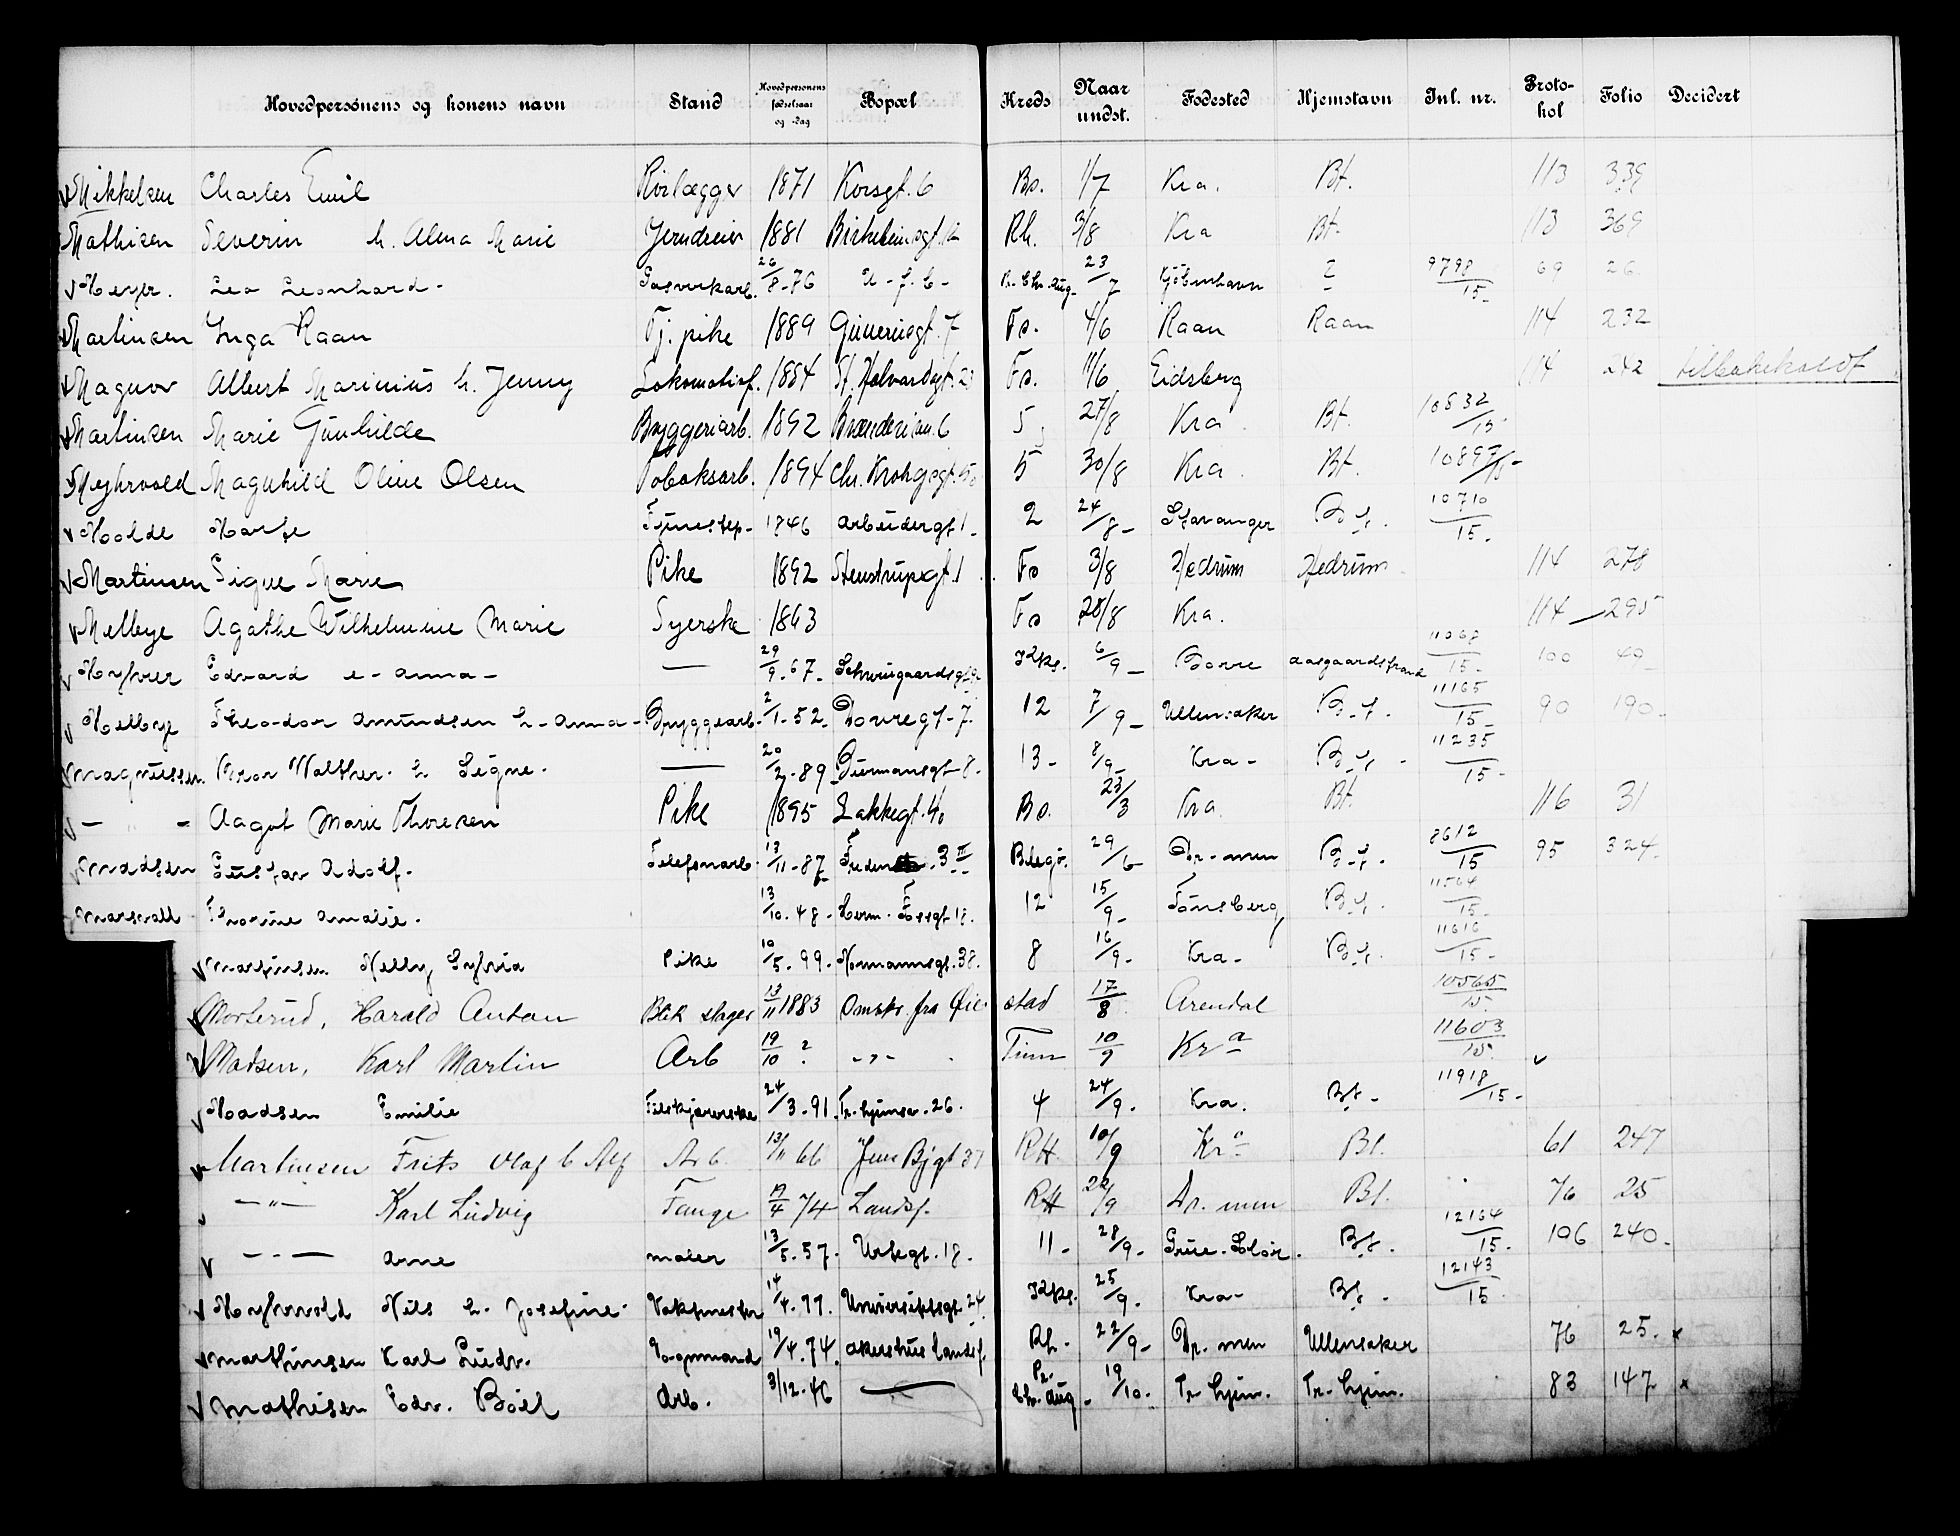 Hovedpersonens og konens navn Stand Hovedpersonens fødselsaar og -dag Bopæl Kreds Naar undst. Fødested Hjemstavn Inl. nr. Proto-kol Folio Decidert
Mikkelsen Charles Emil Rørlægger 1871 Korsgt. 6 Bs. 1/7 Kra. Bt. 113 339
Mathisen Severin h. Alma Marie Jerndreier 1881 Birkebeinergt. 12 Rh. 3/8 Kra Bt. 113 369
Meyer. Leo Leonhard - Gasverkarb. 26/8-76 u-f-b- 23/7 Kjöbenhavn 9798/15- 69 26
Martinsen Inga Raan Tj. pike 1889 Grünersgt. 7 Fs. 4/6 Raan Raan 114 232
Magner Albert Marinius h. Jenny Lokomotivf. 1884 St. Halvardsgt. Fs. 11/6 Eidsberg 114 242 tilbakekaldt
Martinsen Marie Gunhilde Bryggeriarb. 1892 6 5 27/8 Kra. Bt. 10832/15
Myhrvold Magnhild Oline Olsen Tobaksarb. 1894 Chr. Krohgsgt. 5 30/8 Kra. Bt.
Molde Marte 1846 Arbeidergt 1- 2 24/8- Stavanger B.t. 10710/15-
Martinsen Signe Marie Pike 1892 Stenstrupsgt. 1 Fs 3/8 Hedrum Hedrum 114 278
Melbye Agathe Wilhelmine Marie Syerske 1863 Fs 28/8 Kra. 114 295
Myhrer Edvard e-Anna- — 29/9-67- Schweigaardsgt 6/9- Borre Aasgaardstrand 15- 100 40-
Melbye Theodor Amundsen h-Anna- Bryggearb- 2/1-52- Dovregt-7. 12 7/9- Ullensaker B-t- 11165/15- 90 190-
Magnussen Bror Walther. h Signe. — 20/2-89 Biermansgt-8- 13- 8/9- Kra- B-t- 11235/15-
— " - Aagot Marie Thoresen Pike 1895 Lakkegt. Bs. 23/3 Kra. Bt. 116 31
Madsen Gustav Adolf. Telefonarb- 13/11-87 3 II 29/6- Dr-men B-t- 8612/15 95 324-
Amalie. 13/10-48- Herm. Fossgt 18. 12 15/9- Tönsberg B-t- 11564/15-
Martinsen Nelly Sylvia Pike 10/5-99- Normannsgt. 38. 8 16/9- Kra- B-t- 11616/15-
Morterud, Harald Anton Blik slager 13/11 1883 Omstr. fra stad 17/8 Arendal 10565/15
Madsen, Karl Martin Arb 19/10 ? -"- 10/9 Kra 11603/15
Madsen Emilie 24/3-91. Tr.hjemsv. 26. 4 24/9- Kra. Bt- 11918/15-
Martinsen Frits Olaf Arb. 13/11 66 Jens Bjgt 37 RH. 10/9 Kra Bt. 61 247
—"— Karl Ludvig Fange 19/4 74 Landsf. RH 22/9 Dr. men Bt. 76 25
—"— Arne maler 13/5-57- Urtegt. 18. 11- 28/9- Grue-Solör. Bt. 12164/15- 106 240-
Myhrvold Nils h. Josefine- Vaktmester 14/4-77. Universitetsgt. 24. 25/9- Kra- Bt- 12143/15-
Marthinsen Karl Ludv. Vognmand 19/4.74. Akershus landsf. Rh- 22/9- Dr. men Ullensaker 76 25. x
Mathisen Edv. Arb. 3/12-46 — Pr. Chr. Aug- 19/10- Tr.hjem. Tr-hjem. 83 147 x